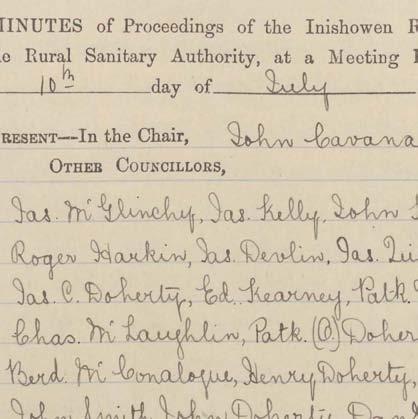 MINUTES of Proceedings of the Inishowen R
e Rural Sanitary Authority, at a Meeting
10th day of July
RESENT—In the Chair, John Cavana
OTHER COUNCILLORS,
Jas. McGlinchy, Jas. Kelly, John
Roger Harkin, Jas. Devlin, Jas. Qui
Jas. C. Doherty, Ed. Kearney, Patk.
Chas. McLaughlin, Patk. (B.) Doher
Berd. McConalogue, Henry Doherty,
John Smith, John Doherty, Dan